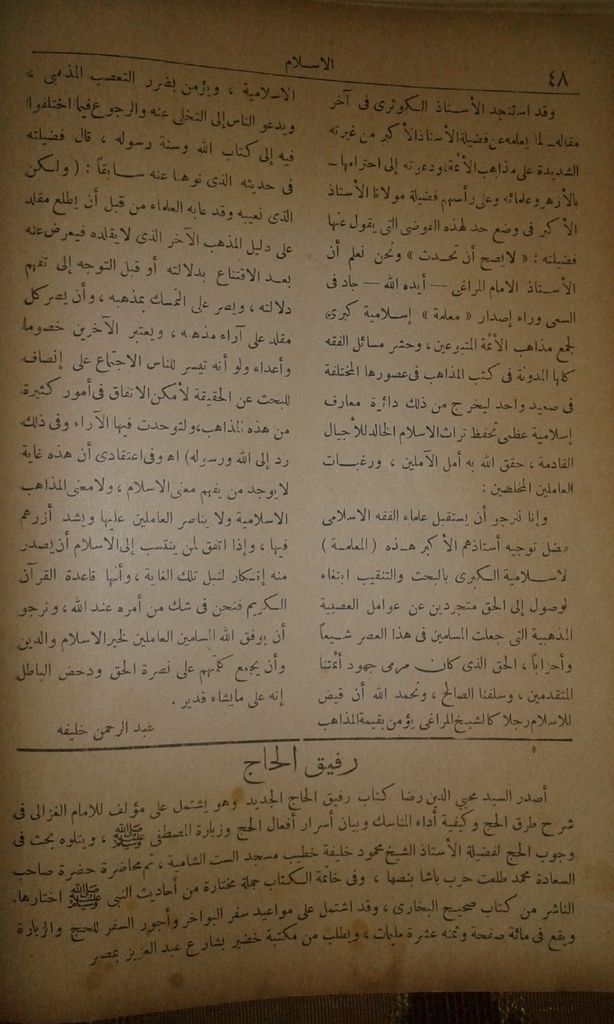 الاسلام
٤٨
وقد استنجد الأستاذ الكوثرى فى آخر
مقاله لما يعلمه عن فضيلة الأستاذ الأكبر من غيرته
الشديدة على مذاهب الأئمة ودعوته إلى احترامها ـ
بالأزهر وعلمائه وعلى رأسهم فضيلة مولانا الأستاذ
الأكبر فى وضع حد لهذه الفوضى التى يقول عنها
فضيلته : « لا يصح أن تحدث » ونحن نعلم أن
الأستاذ الامام المراغى — أيده الله — جاد فى
السعى وراء إصدار « معلمة » إسلامية كبرى
لجمع مذاهب الأئمة المتبوعين ، وحشر مسائل الفقه
كلها المدونة فى كتب المذاهب فى عصورها المختلفة
فى صعيد واحد ليخرج من ذلك دائرة معارف
إسلامية عظمى تحفظ تراث الاسلام الخالد للأجيال
القادمة ، حقق الله به أمل الآملين ، ورغبات
العاملين المخلصين :
وإنا لنرجو أن يستقبل علماء الفقه الاسلامى
بفضل توجيه أستاذهم الأكبر هذه ( المعلمة )
لاسلامية الكبرى بالبحث والتنقيب ابتغاء
لوصول إلى الحق متجردين عن عوامل العصبية
المذهبية التى جعلت المسلمين فى هذا العصر شيعاً
وأحزاباً ، الحق الذى كان مرمى جهود أئمتنا
المتقدمين ، وسلفنا الصالح ، ونحمد الله أن قيض
للاسلام رجلا كالشيخ المراغى يؤمن بقيمة المذاهب
الاسلامية ، ويؤمن بضرر التعصب المذهبى ،
ويدعو الناس إلى التخلى عنه والرجوع فيما اختلفوا
فيه إلى كتاب الله وسنة رسوله ، قال فضيلته
فى حديثه الذى نوهنا عنه سابقاً : ( ولكن
الذى نعيبه وقد عابه العلماء من قبل أن يطلع مقلد
على دليل المذهب الآخر الذى لا يقلده فيعرض عنه
بعد الاقتناع بدلالته أو قبل التوجه إلى تفهم
دلالته ، ويصر على التمسك بمذهبه ، وأن يصر كل
مقلد على آراء مذهبه ، ويعتبر الآخرين خصوما
وأعداء ولو أنه تيسر للناس الاجتماع على إنصاف
للبحث عن الحقيقة لأمكن الاتفاق فى أمور كثيرة
من هذه المذاهب ، ولتوحدت فيها الآراء وفى ذلك
رد إلى الله ورسوله ) اه وفى اعتقادى أن هذه غاية
لا يوجد من يفهم معنى الاسلام ، ولا معنى المذاهب
الاسلامية ولا يناصر العاملين عليها ويشد أزرهم
فيها ، وإذا اتفق لمن ينتسب إلى الاسلام أن يصدر
منه إنكار لنبل تلك الغاية ، وأنها قاعدة القرآن
الكريم فنحن فى شك من أمره عند الله ، ونرجو
أن يوفق الله المسلمين العاملين لخير الاسلام والدين
وأن يجمع كلمتهم على نصرة الحق ودحض الباطل
إنه على ما يشاء قدير .
عبد الرحمن خليفه
رفيق الحاج
أصدر السيد محيى الدين رضا كتاب رفيق الحاج الجديد وهو يشتمل على مؤلف للامام الغزالى فى
شرح طرق الحج وكيفية أداء المناسك وبيان أسرار أفعال الحج وزيارة المصطفى ﷺ ، ويتلوه بحث فى
وجوب الحج لفضيلة الأستاذ الشيخ محمود خليفة خطيب مسجد الست الشامية ، ثم محاضرة حضرة صاحب
السعادة محمد طلعت حرب باشا بنصها ، وفى خاتمة الكتاب جملة مختارة من أحاديث النبى ﷺ اختارها
الناشر من كتاب صحيح البخارى ، وقد اشتمل على مواعيد سفر البواخر وأجور السفر للحج والزيارة
ويقع فى مائة صفحة وثمنه عشرة مليمات ، ويطلب من مكتبة خضير بشارع عبد العزيز بمصر